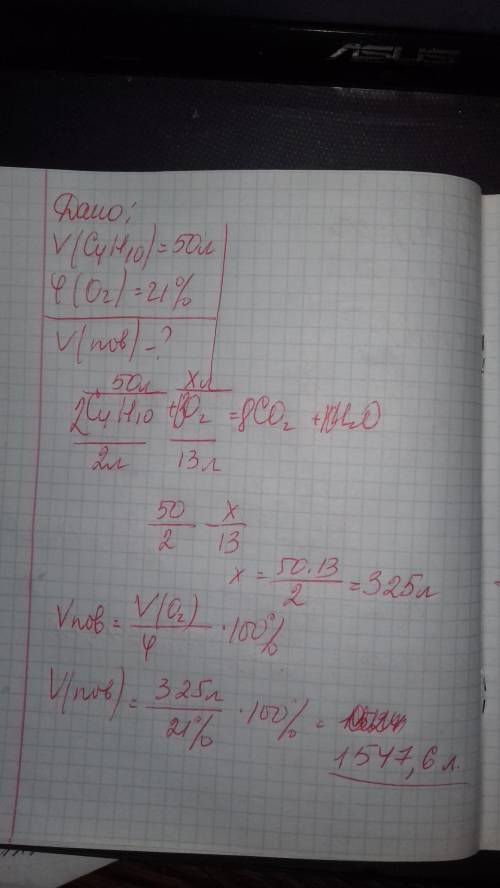 ASUS
Дано:
V(C4H10) = 50л
φ(O2) = 21%
V(пов) - ?
50л xл
2C4H10 + 13O2 = 8CO2 + 10H2O
2л 13л
50/2 x/13
x = 50·13/2 = 325л
Vпов = V(O2)/φ · 100%
V(пов) = 325л/21% · 100% =
1547,6 л.